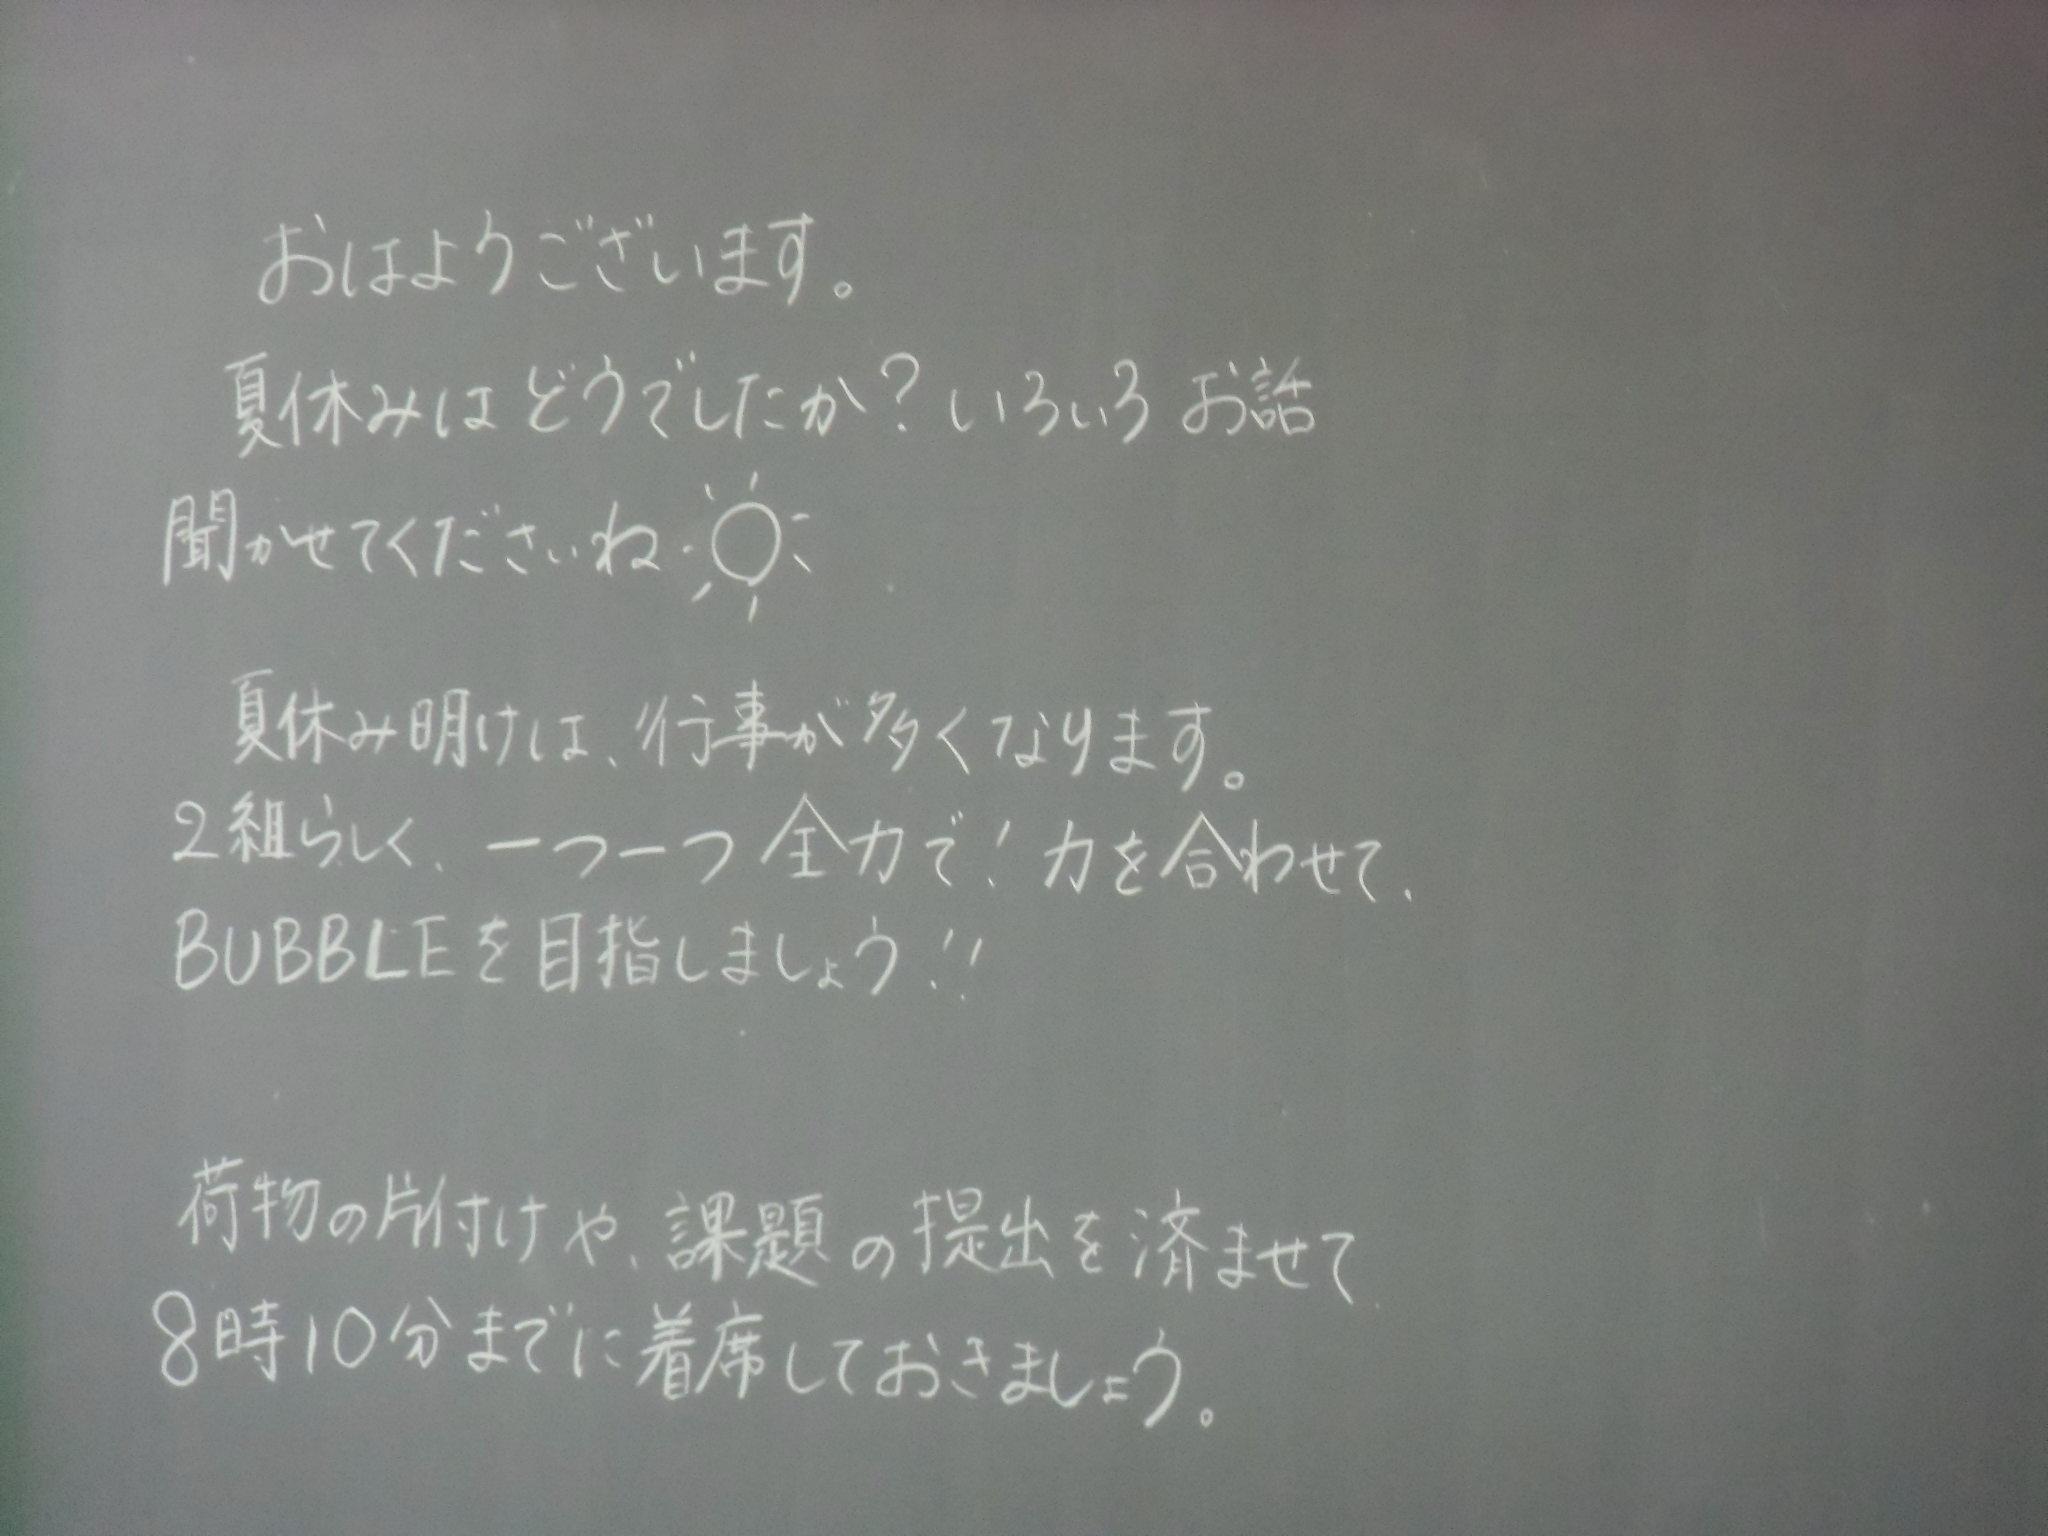 おはようございます。
夏休みはどうでしたか?いろいろお話
聞かせてくださいね
夏休み明けは、行事が多くなります。
2組らしく、一つ一つ全力で!力を合わせて、
BUBBLEを目指しましょう!!
荷物の片付けや、課題の提出を済ませて
8時10分までに着席しておきましょう。